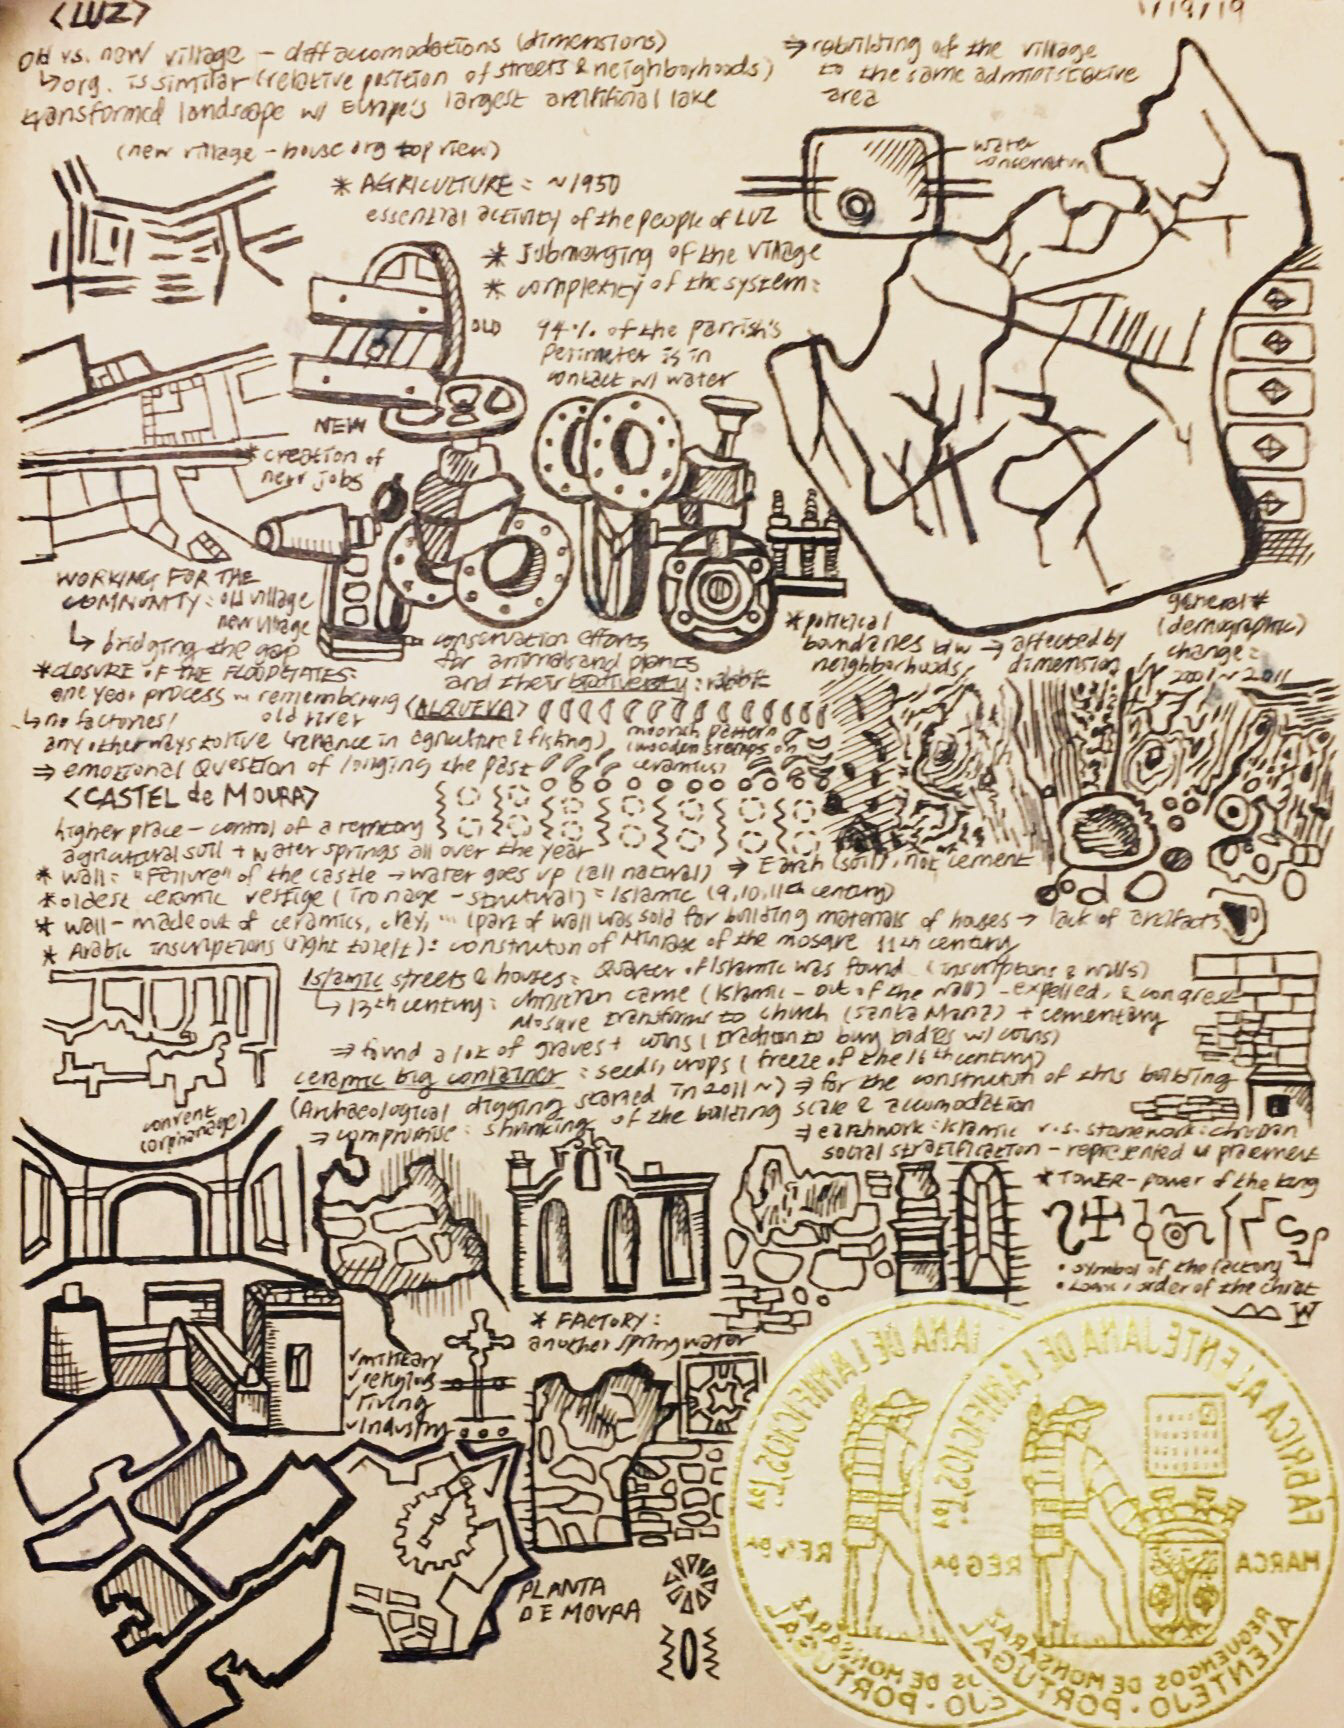 <LUZ>
1/19/19
old vs. new village – diff accomodations (dimensions)
↳ org. is similar (relative position of streets & neighborhoods)
transformed landscape w/ Europe's largest artifitial lake
⇒ rebuilding of the village
to the same administrative
area
(new village – house org top view)
water
conservation
* AGRICULTURE: ~1950
essential activity of the people of LUZ
* submerging of the village
* complexity of the system:
OLD
94% of the parrish's
perimeter is in
contact w/ water
NEW
* creation of
new jobs
WORKING FOR THE
COMMUNITY: old village
new village
↳ bridging the gap
conservation efforts
for animals and plants
and their biodiversity:
* political
boundaries b/w
neighborhoods
→ affected by
dimension
general #
(demographic)
change:
2001 ~ 2011
*CLOSURE OF THE FLOODGATES:
one year process ~ remembering
old river
↳ no factories!
any other ways to live (reliance in agriculture & fishing)
⇒ emotional question of longing the past
<ALQUEVA>
moorish pattern
(wooden stamps on
ceramics)
<CASTEL de MOURA>
higher place – control of a territory
agricultural soil + water springs all over the year
* wall: "failure" of the castle → water goes up (all natural) → Earth (soil), not cement
* oldest ceramic vestige (Iron age – structural) = Islamic (9,10,11th century)
* wall – made out of ceramics, clay, ... (part of wall was sold for building materials of houses → lack of artifacts
* Arabic inscriptions (right to left): constrution of Minrage of the mosque 11th century
Islamic streets & houses: Quarter of Islamic was found (inscriptions & walls)
↳ 13th century: christian came (Islamic – out of the wall) – expelled, & congrest
Mosque transforms to church (Santa Maria) + cementary
⇒ found a lot of graves + coins (tradition to bury bodies w/ coins)
ceramic big container: seeds, crops (freeze of the 16th century)
(Archaeological digging started in 2011 ~) ⇒ for the constrution of this building
⇒ compromise: shrinking of the building scale & accomodation
⇒ earthwork: Islamic v.s. stonework: christian
social stratification – represented w/ placement
convent
(orphanage)
* TOWER – power of the king
• symbol of the factory
• order of the christ
* FACTORY:
another spring water
✓ military
✓ religious
✓ living
✓ Industry
PLANTA
DE MOURA
FABRICA ALENTEJANA DE LANIFICIOS
MARCA
REG DA
REGUENGOS DE MONSARAZ
ALENTEJO · PORTUGAL